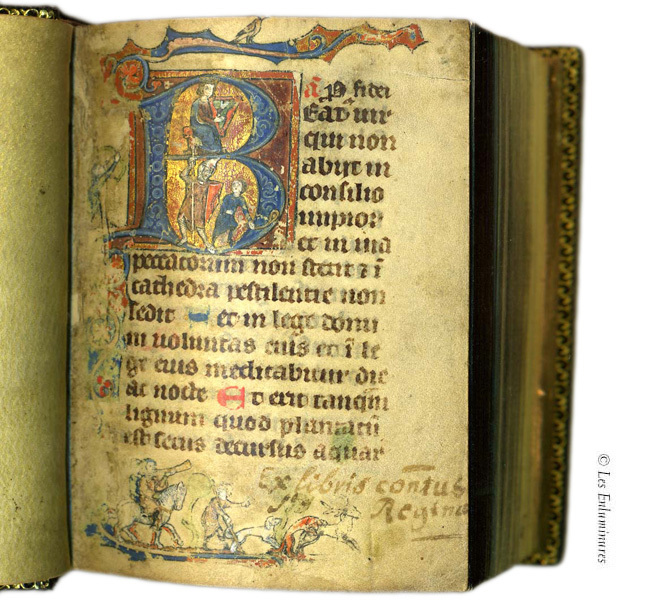 Añ P fidei
Eat9 uir
qui non
abijt in
consilio
impior
et in uia
peccatorum non stetit ⁊ ī
cathedra pestilentie non
sedit et in lege domi
ni uoluntas eius et ī le
ge eius meditabitur die
ac nocte Et erit tanqm̄
lignum quod plantatū
est secus decursus aquar
Ex libris contus
Regina
© Les Enluminures